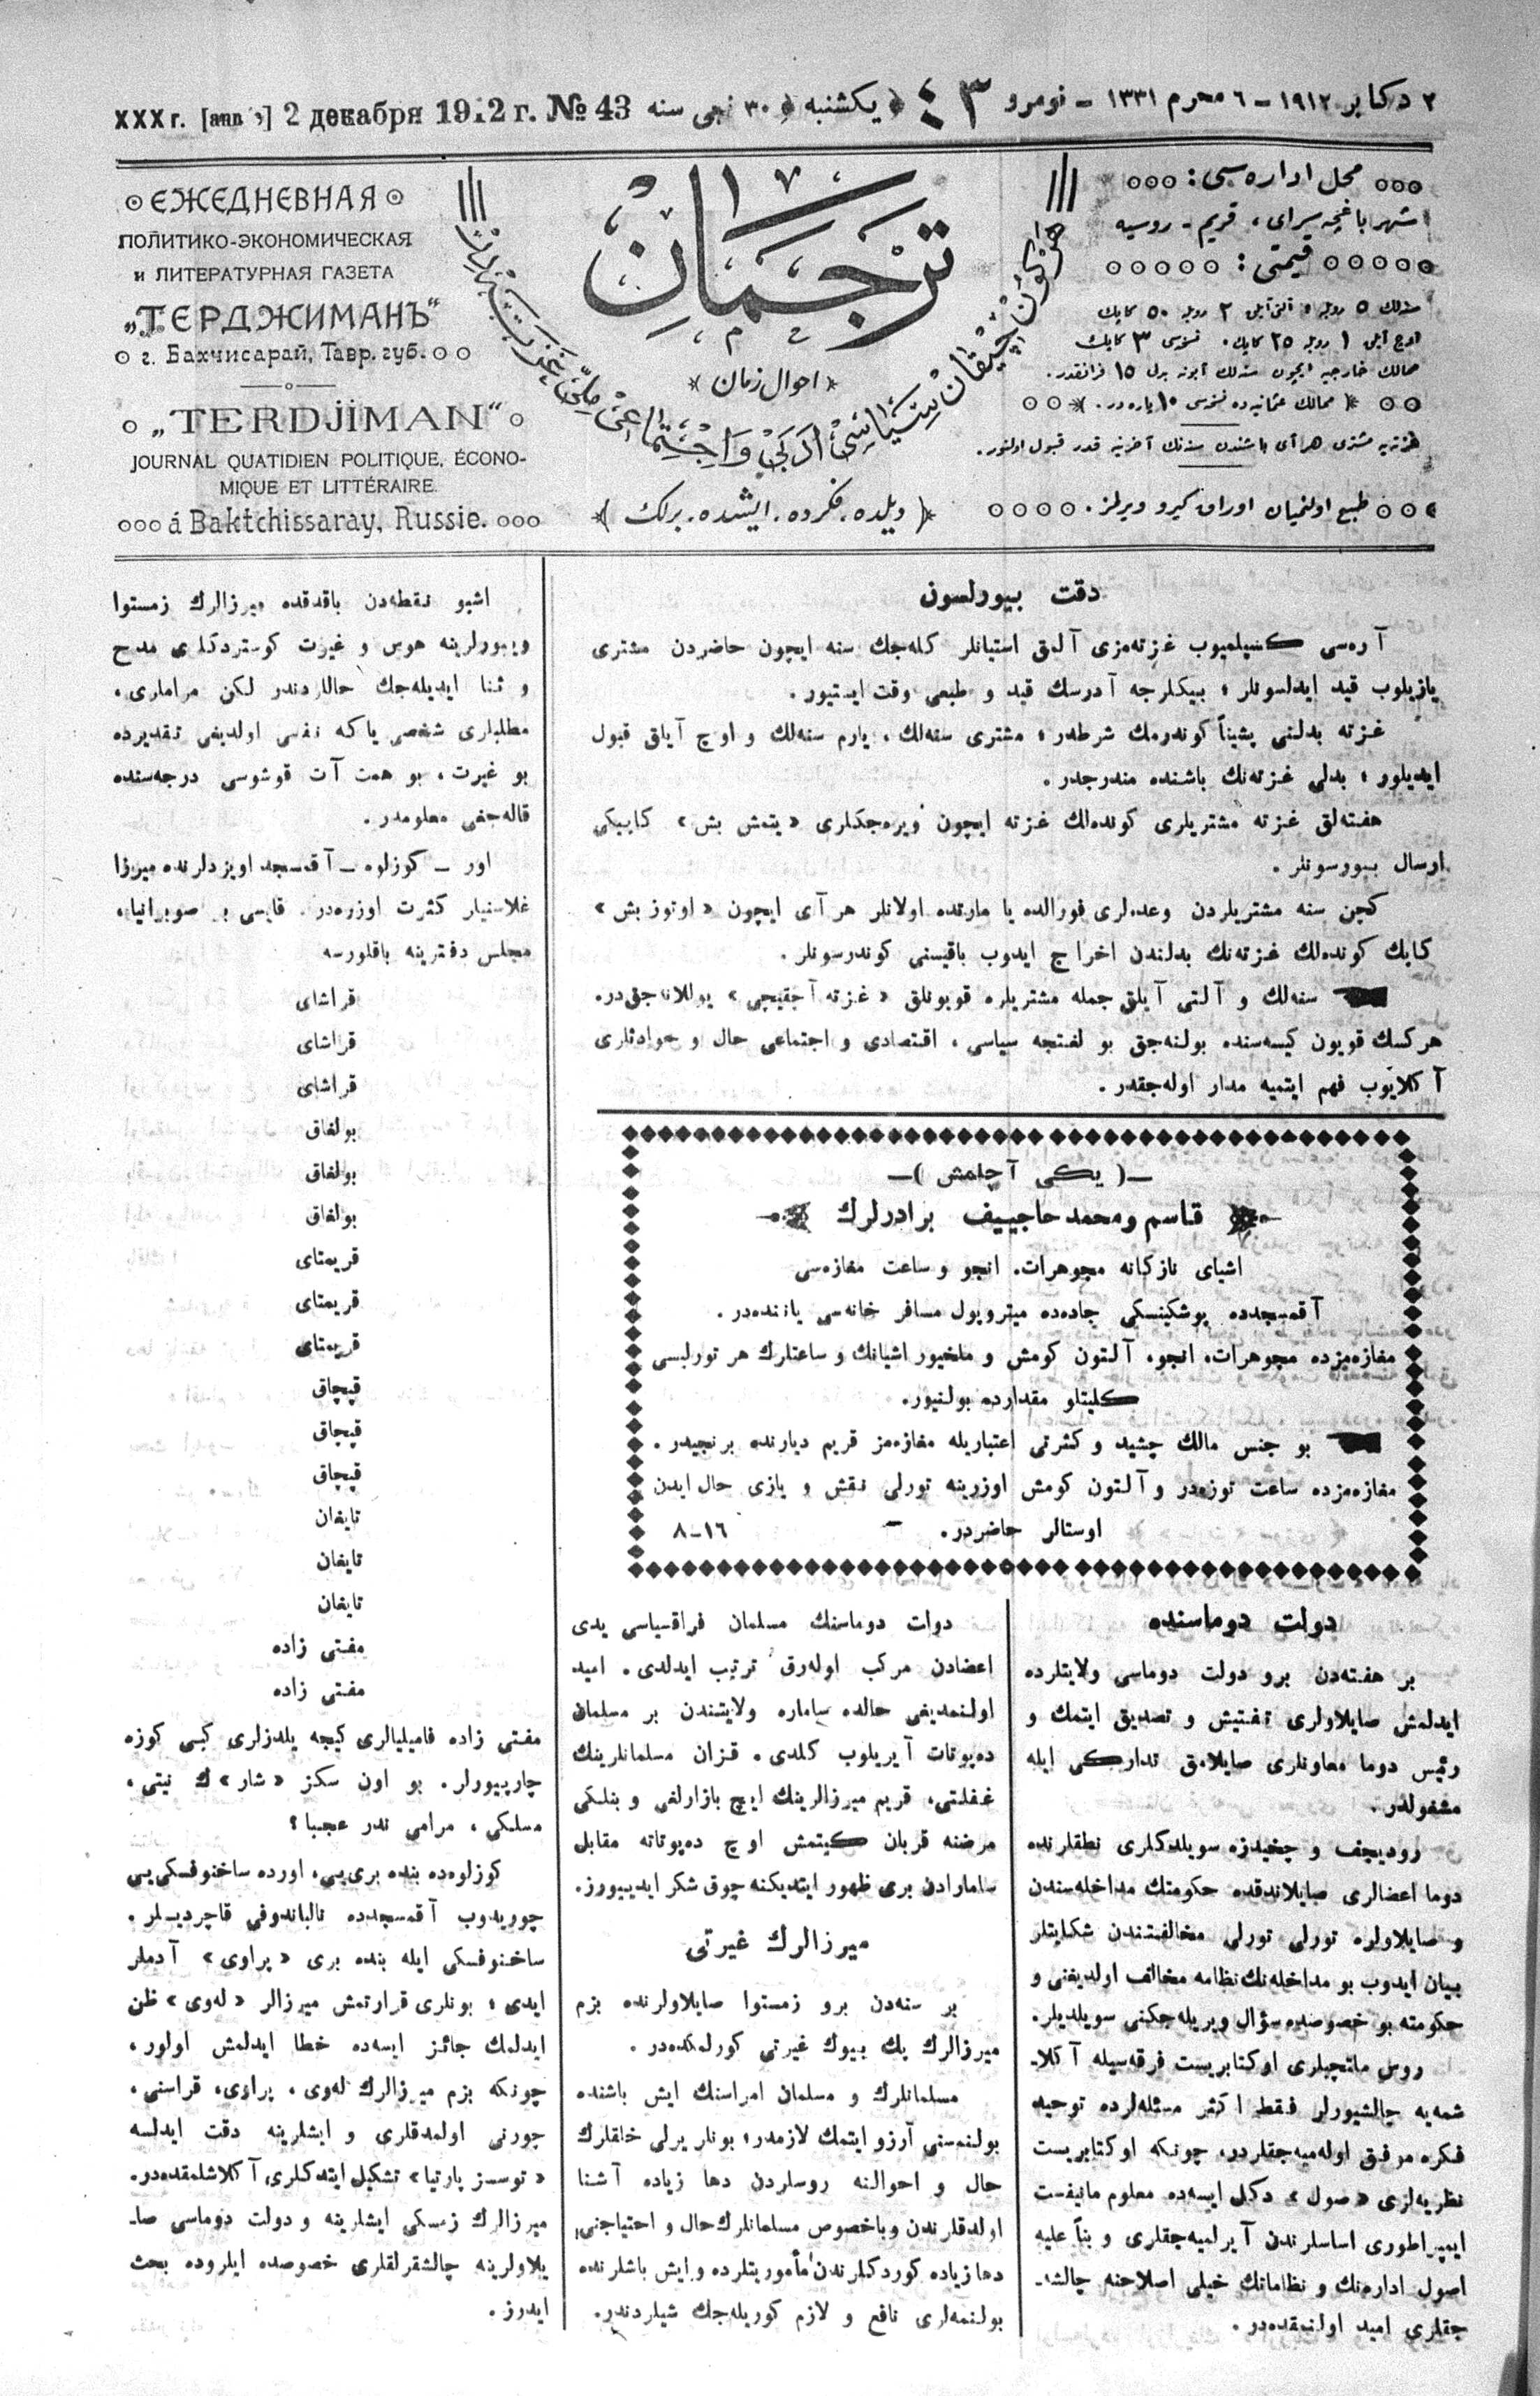 ٢ دكابر ١٩١٢ – ٦ محرم ١٣٣١ – نومرو ٤٣ ﴿ يكشنبه ﴾ ٣٠ نجی سنه
XXX г. 2 декабря 1912 г. № 43
ЕЖЕДНЕВНАЯ
ПОЛИТИКО-ЭКОНОМИЧЕСКАЯ
и ЛИТЕРАТУРНАЯ ГАЗЕТА
„ТЕРДЖИМАНЪ"
г. Бахчисарай, Тавр. губ.
„TERDJIMAN"
JOURNAL QUATIDIEN POLITIQUE, ÉCONO-
MIQUE ET LITTÉRAIRE.
á Baktchissaray, Russie.
ترجمان
احوال زمان
﴿ ديلده. فكرده. ايشده. برلك ﴾
محل اداره‌سی:
شهر باغچه‌سرای، قريم - روسيه
قيمتی:
سنه‌لك ٥ روبله، آلتی آيلق ٢ روبله ٥٠ كاپك
اوچ آيلق ١ روبله ٢٥ كاپك. نسخه‌سی ٣ كاپك
ممالك خارجيه ايچون سنه‌لك آبونه بدلی ١٥ فرانقدر.
ممالك عثمانيه‌ده نسخه‌سی ١٠ پاره‌در.
غزته‌يه مشتری هر آی باشندن سنه‌نك آخرينه قدر قبول اولنور.
طبع اولنميان اوراق كيرو ويرلمز.
دقت بيورلسون
آره‌سی كسيلميوب غزته‌مزی آلمق استيانلر كله‌جك سنه ايچون حاضردن مشتری
يازيلوب قيد ايدلسونلر؛ بيكلرجه آدرسك قيد و طبعی وقت ايستيور.
غزته بدلنی پشيناً كوندرمك شرطدر؛ مشتری سنه‌لك، يارم سنه‌لك و اوچ آيلق قبول
ايديلور؛ بدلی غزته‌نك باشنده مندرجدر.
هفته‌لق غزته مشتريلری كونده‌لك غزته ايچون ويره‌جكلری «يتمش بش» كاپيكی
ارسال بيورسونلر.
كچن سنه مشتريلردن وعده‌لری فورالده يا مارتده اولانلر هر آی ايچون «اوتوز بش»
كاپك كونده‌لك غزته‌نك بدلندن اخراج ايدوب باقيسنی كوندرسونلر.
سنه‌لك و آلتی آيلق جمله مشتريلره قويونلق «غزته آچقيچی» يوللانه‌جق‌در.
هركسك قويون كيسه‌سنده بولنه‌جق بو لغتجه سياسی، اقتصادی و اجتماعی حال و حوادثلری
آكلايوب فهم ايتميه مدار اوله‌جقدر.
—( يكی آچلمش )—
قاسم و محمد حاجييف برادرلرك
اشيای نازكانه مجوهرات، انجو و ساعت مغازه‌سی
آقمسجدده پوشكينسكی جاده‌ده ميتروپول مسافر خانه‌سی ياننده‌در.
مغازه‌مزده مجوهرات، انجو، آلتون كومش و ملخيور اشيانك و ساعتلرك هر تورليسی
كليتلو مقدارده بولنيور.
بو جنس مالك چشيد و كثرتی اعتباريله مغازه‌مز قريم ديارنده برنجيدر.
مغازه‌مزده ساعت توزه‌در و آلتون كومش اوزرينه تورلی نقش و يازی حال ايدن
اوستالر حاضردر. – ١٦–٨
دولت دوماسنده
بر هفته‌دن برو دولت دوماسی ولايتلرده
ايدلمش صايلاولری تفتيش و تصديق ايتمك و
رئيس دوما معاونلری صايلامق تداركی ايله
مشغولدر.
روديچف و چخيدزه سويلدكلری نطقلرنده
دوما اعضالری صايلاندقده حكومتك مداخله‌سندن
و صايلاولره تورلی تورلی مخالفتندن شكايتلر
بيان ايدوب بو مداخله‌نك نظامه مخالف اولديغنی و
حكومته بو خصوصده سؤال ويريله‌جكنی سويلديلر.
روس ملتچيلری اوكتابريست فرقه‌سيله آكلا-
شمه‌يه چالشيورلر فقط اكثر مسئله‌لرده توحيد
فكره موفق اوله‌ميه‌جقلردر، چونكه اوكتابريست
نظريه‌لری «صول» دكل ايسه‌ده معلوم مانيفست
ايمپراطوری اساسلرندن آيرلميه‌جقلری و بناً عليه
اصول اداره‌نك و نظاماتك خيلی اصلاحنه چالشه-
جقلری اميد اولنمقده‌در.
دولت دوماسنك مسلمان فراقسياسی يدی
اعضادن مركب اوله‌رق ترتيب ايدلدی. اميد
اولنمديغی حالده ساماره ولايتندن بر مسلمان
ده‌پوتات آيريلوب كلدی. قزان مسلمانلرينك
غفلتی، قريم ميرزالرينك ايچ بازارلغی و بنلكی
مرضنه قربان كيتمش اوچ ده‌پوتاته مقابل
سامارادن بری ظهور ايتديكنه چوق شكر ايدييورز.
ميرزالرك غيرتی
بر سنه‌دن برو زمستوا صايلاولرنده بزم
ميرزالرك پك بيوك غيرتی كورلمكده‌در.
مسلمانلرك و مسلمان امراسنك ايش باشنده
بولنمسنی آرزو ايتمك لازمدر؛ بونلر يرلی خلقلرك
حال و احوالنه روسلردن دها زياده آشنا
اولدقلرندن و باخصوص مسلمانلرك حال و احتياجنی
دها زياده كوردكلرندن مأموريتلرده و ايش باشلرنده
بولنمه‌لری نافع و لازم كوريله‌جك شيلردندر.
اشبو نقطه‌دن باقدقده ميرزالرك زمستوا
ويبورلرينه هوس و غيرت كوستردكلری مدح
و ثنا ايديله‌جك حاللردندر لكن مراملری،
مطلبلری شخصی ياكه نفسی اولديغی تقديرده
بو غيرت، بو همت آت قوشوسی درجه‌سنده
قاله‌جغی معلومدر.
اور – كوزلوه – آقمسجد اويزدلرنده ميرزا
غلاسنيلر كثرت اوزره‌در. قايسی بر صوبرانيا،
مجلس دفترينه باقلورسه
قراشای
قراشای
قراشای
بولغاق
بولغاق
بولغاق
قريمتای
قريمتای
قريمتای
قپچاق
قپچاق
قپچاق
تايغان
تايغان
تايغان
مفتی زاده
مفتی زاده
مفتی زاده فاميليالری كيجه يلدزلری كبی كوزه
چارپييورلر. بو اون سكز «شار»ك نيتی،
مسلكی، مرامی ندر عجبا؟
كوزلوه‌ده بنده بری‌يی، اورده ساخنوفسكی‌يی
چوريدوب آقمسجدده نالباندوفی قاچرديلر.
ساخنوفسكی ايله بنده بری «پراوی» آدملر
ايدی؛ بونلری قرارتمش ميرزالر «له‌وی» ظن
ايدلمك جائز ايسه‌ده خطا ايدلمش اولور،
چونكه بزم ميرزالرك له‌وی، پراوی، قراسنی،
چورنی اولمدقلری و ايشلرينه دقت ايدلسه
«توسسز پارتيا» تشكيل ايتدكلری آكلاشلمقده‌در.
ميرزالرك زمسكی ايشلرينه و دولت دوماسی صا-
يلاولرينه چالشقرلقلری خصوصده ايلروده بحث
ايدرز.